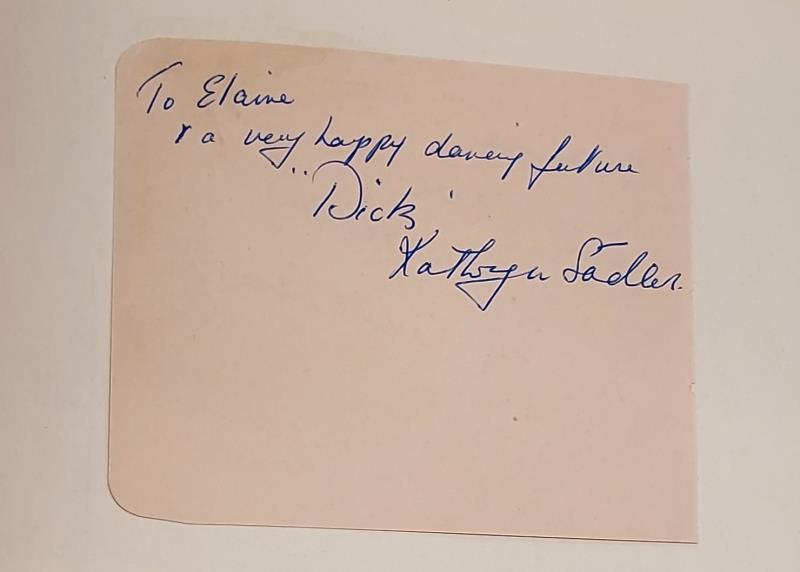 To Elaine
& a very happy dancing future
"Dick"
Kathryn Sadler.